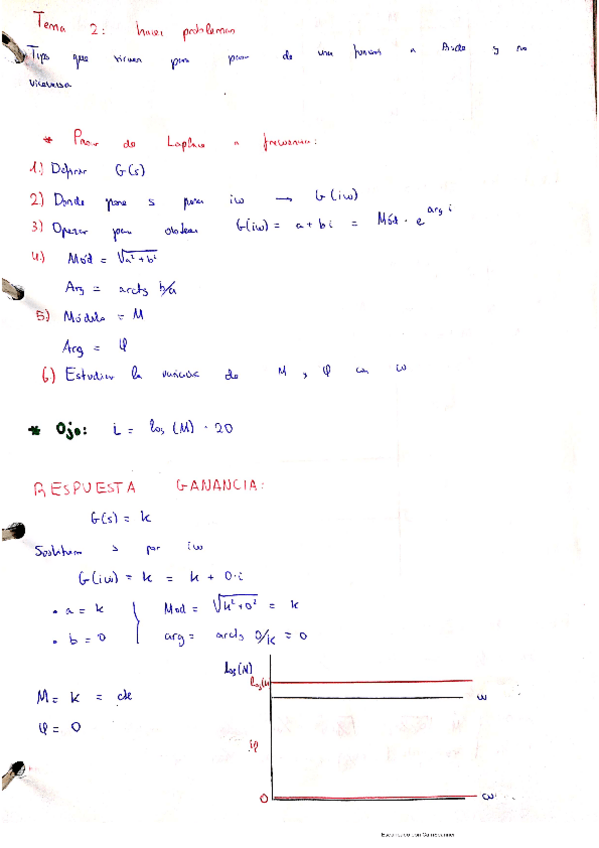 Tema 2: hacer problemas
Tips que sirven para pasar de una función a Bode y no
viceversa
* Pasar de Laplace a frecuencia:
1.) Definir G(s)
2) Donde pone s poner iω → G(iω)
3) Operar para obtener G(iω) = a + bi = Mód · e^arg i
4.) Mód = √a² + b²
Arg = arctg b/a
5.) Módulo = M
Arg = φ
6) Estudiar la variación de M, φ con ω
* Ojo: L = log (M) · 20
RESPUESTA GANANCIA:
G(s) = k
Sustituimos s por iω
G(iω) = k = k + 0·i
• a = k
• b = 0
Mod = √k² + 0² = k
arg = arctg 0/k = 0
M = k = cte
φ = 0
ω
φ
0
ω
Escaneado con CamScanner